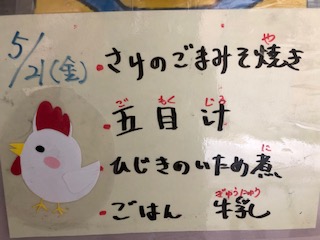 5/21(金)
・さけのごまみそ焼き
・五目汁
・ひじきのいため煮
・ごはん 牛乳